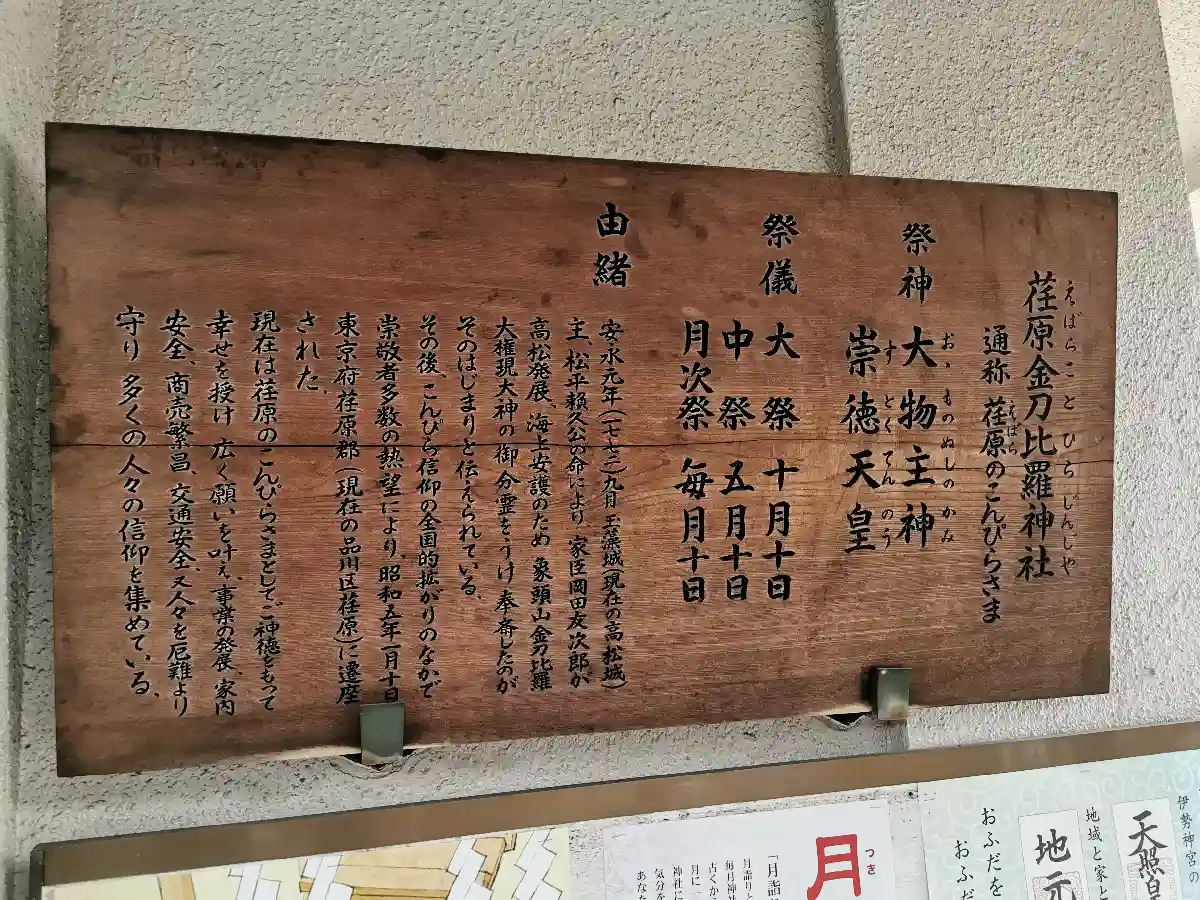 荏原金刀比羅神社
えばらことひらじんじや
通称 荏原のこんぴらさま
えばら
祭神 大物主神
おゝものぬしのかみ
崇徳天皇
すとくてんのう
祭儀 大祭 十月十日
中祭 五月十日
月次祭 毎月十日
由緒
安永元年(一七七二)九月 玉藻城(現在の高松城)
主、松平頼久公の命により、家臣岡田友次郎が
高松発展、海上安護のため 象頭山金刀比羅
大権現大神の御分霊をうけ奉斎したのが
そのはじまりと伝えられている。
その後、こんぴら信仰の全国的拡がりのなかで
崇敬者多数の熱望により、昭和五年一月十日
東京府荏原郡(現在の品川区荏原)に遷座
された。
現在は荏原のこんぴらさまとしてご神徳をもって
幸せを授け 広く願いを叶え、事業の発展、家内
安全、商売繁昌、交通安全、又人々を厄難より
守り 多くの人々の信仰を集めている。
伊勢神宮の
天照皇
地域と家と
地元
おふだを
おふだ
月
つき
「月詣
月詣りと
毎月神社
古くか
月に一
神社に
気分を
あなた